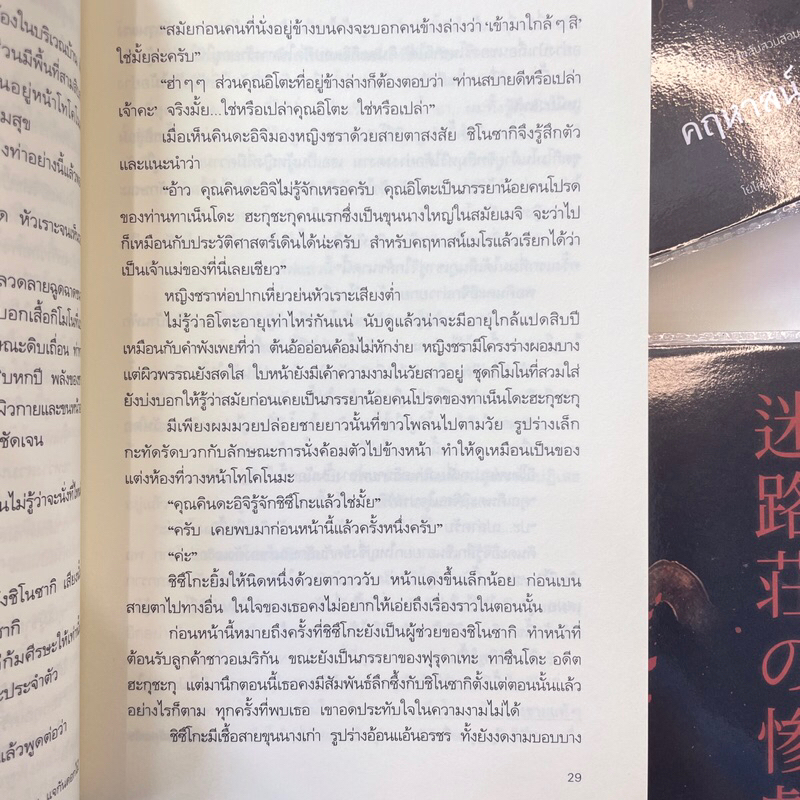 “สมัยก่อนคนที่นั่งอยู่ข้างบนคงจะบอกคนข้างล่างว่า ‘เข้ามาใกล้ๆ สิ’
ใช่มั้ยล่ะครับ”
“ฮ่าๆๆ ส่วนคุณอิโตะที่อยู่ข้างล่างก็ต้องตอบว่า ‘ท่านสบายดีหรือเปล่า
เจ้าคะ’ จริงมั้ย...ใช่หรือเปล่าคุณอิโตะ ใช่หรือเปล่า”
เมื่อเห็นคินดะอิจิมองหญิงชราด้วยสายตาสงสัย ชิโนซากิจึงรู้สึกตัว
และแนะนำว่า
“อ้าว คุณคินดะอิจิไม่รู้จักเหรอครับ คุณอิโตะเป็นภรรยาน้อยคนโปรด
ของท่านทาเน็นโดะ ฮะกุชะกุคนแรกซึ่งเป็นขุนนางใหญ่ในสมัยเมจิ จะว่าไป
ก็เหมือนกับประวัติศาสตร์เดินได้น่ะครับ สำหรับคฤหาสน์เมโรแล้วเรียกได้ว่า
เป็นเจ้าแม่ของที่นี่เลยเชียว”
หญิงชราห่อปากเหี่ยวย่นหัวเราะเสียงต่ำ
ไม่รู้ว่าอิโตะอายุเท่าไหร่กันแน่ นับดูแล้วน่าจะมีอายุใกล้แปดสิบปี
เหมือนกับคำพังเพยที่ว่า ต้นอ้ออ่อนค้อมไม่หักง่าย หญิงชรามีโครงร่างผอมบาง
แต่ผิวพรรณยังสดใส ใบหน้ายังมีเค้าความงามในวัยสาวอยู่ ชุดกิโมโนที่สวมใส่
ยังบ่งบอกให้รู้ว่าสมัยก่อนเคยเป็นภรรยาน้อยคนโปรดของท่าเน็นโดะฮะกุชะกุ
มีเพียงผมมวยปล่อยชายยาวนั้นที่ขาวโพลนไปตามวัย รูปร่างเล็ก
กะทัดรัดบวกกับลักษณะการนั่งค้อมตัวไปข้างหน้า ทำให้ดูเหมือนเป็นของ
แต่งห้องที่วางหน้าโทโคโนมะ
“คุณคินดะอิจิรู้จักชิซึโกะแล้วใช่มั้ย”
“ครับ เคยพบมาก่อนหน้านี้แล้วครั้งหนึ่งครับ”
“ค่ะ”
ชิซึโกะยิ้มให้นิดหนึ่งด้วยตาวาววับ หน้าแดงขึ้นเล็กน้อย ก่อนเบน
สายตาไปทางอื่น ในใจของเธอคงไม่อยากให้เอ่ยถึงเรื่องราวในตอนนั้น
ก่อนหน้านี้หมายถึงครั้งที่ชิซึโกะยังเป็นผู้ช่วยของชิโนซากิ ทำหน้าที่
ต้อนรับลูกค้าชาวอเมริกัน ขณะยังเป็นภรรยาของฟุรุดาเทะ ทาซึนโดะ อดีต
ฮะกุชะกุ แต่มานึกตอนนี้เธอคงมีสัมพันธ์ลึกซึ้งกับชิโนซากิตั้งแต่ตอนนั้นแล้ว
อย่างไรก็ตาม ทุกครั้งที่พบเธอ เขาอดประทับใจในความงามไม่ได้
ชิซึโกะมีเชื้อสายขุนนางเก่า รูปร่างอ้อนแอ้นอรชร ทั้งยังงดงามบอบบาง
29
คฤหาสน์
迷路荘の惨